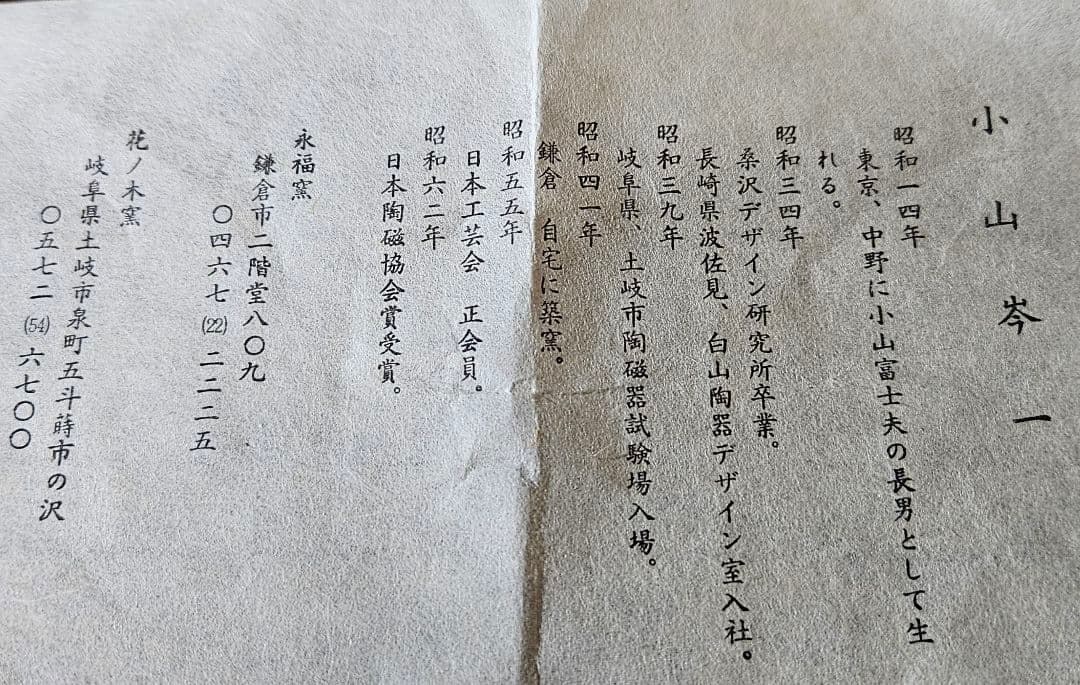 小山岑一
昭和一四年
東京、中野に小山富士夫の長男として生
れる。
昭和三四年
桑沢デザイン研究所卒業。
長崎県波佐見、白山陶器デザイン室入社。
昭和三九年
岐阜県、土岐市陶磁器試験場入場。
昭和四一年
鎌倉 自宅に築窯。
昭和五五年
日本工芸会 正会員。
昭和六二年
日本陶磁協会賞受賞。
永福窯
鎌倉市二階堂八〇九
〇四六七(22)二二二五
花ノ木窯
岐阜県土岐市泉町五斗蒔市の沢
〇五七二(54)六七〇〇